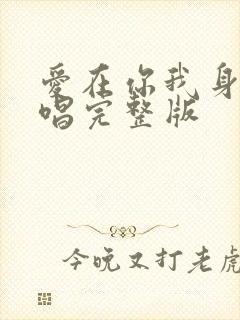 愛在你我身
唱完整版
今晚又打老虎